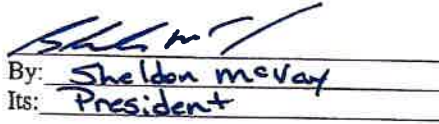 By: Sheldon McVay
Its: President